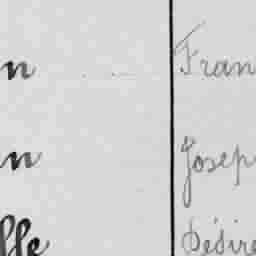 n Fran
n Josep
lle Désiré